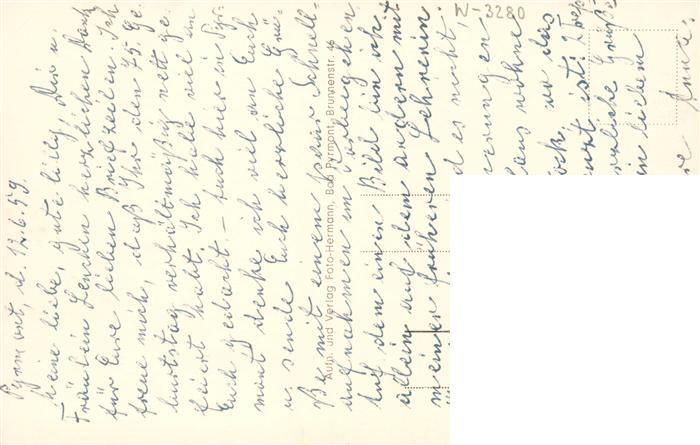 Pyrmont, d. 12.6.59.
Meine liebe, gute Lilly, Dir u.
Fräulein Lenchen herzlichen Dank
für Eure lieben Briefzeilen. Ich
freue mich, daß Ihr den 75. Ge-
burtstag verhältnismäßig nett ge-
feiert habt. Ich habe viel an
Euch gedacht. – Auch hier in Pyr-
mont denke ich viel an Euch
u. sende Euch herzliche Grü-
ße mit einem paar Schnell-
aufnahmen im Vorbeigehen
Auf dem einen Bild bin ich
allein auf dem andern mit
meiner früheren Lehrerin
des nicht,
erungen
aus wohne
ock, wo das
ist.
liche Grüße
in lieben
Aufn. und Verlag Foto-Hermann, Bad Pyrmont, Brunnenstr. 46
N-3280